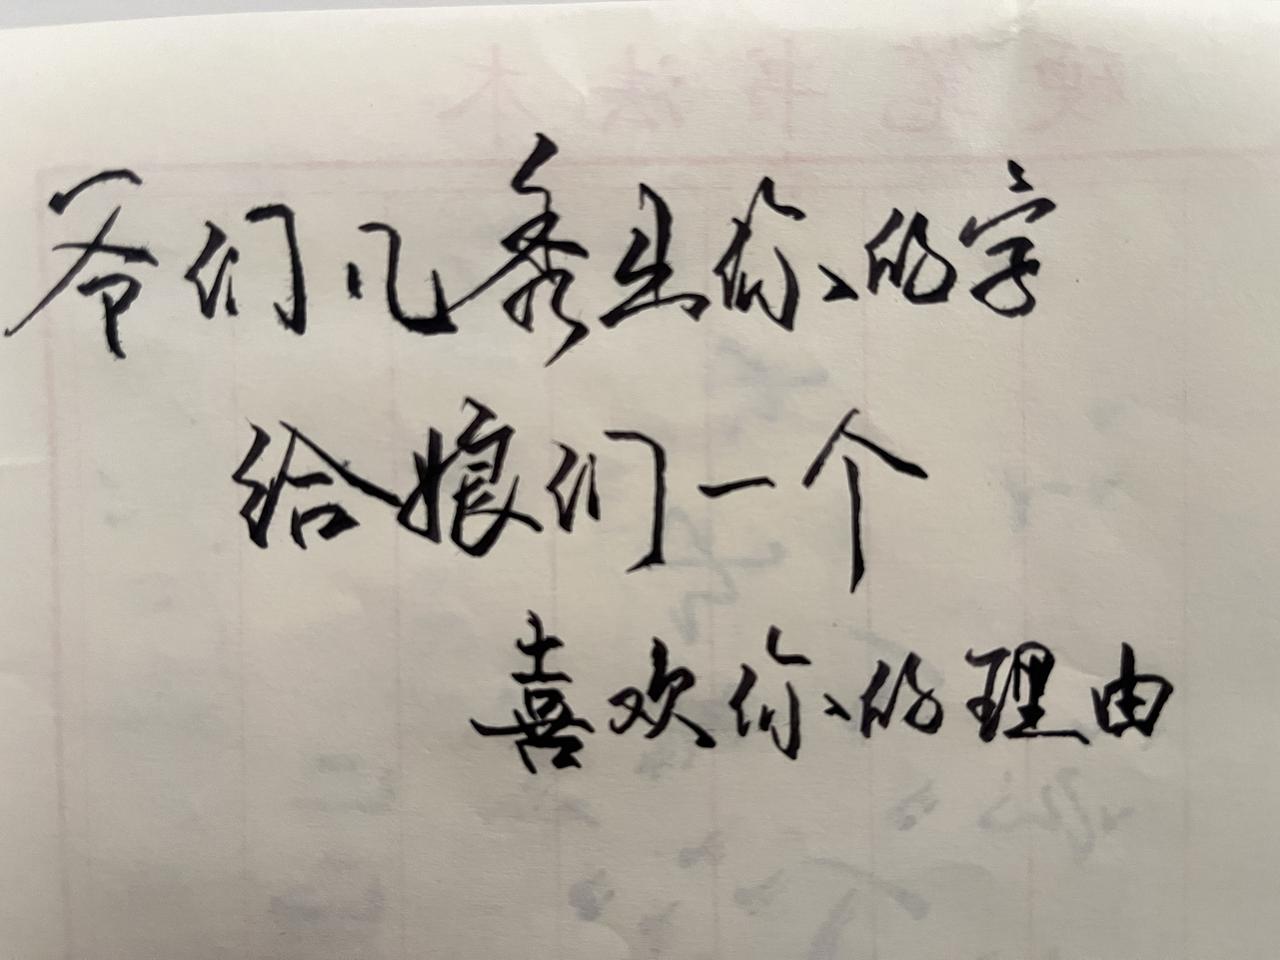 爷们儿秀出你的字
给娘们一个
喜欢你的理由
硬笔书法本